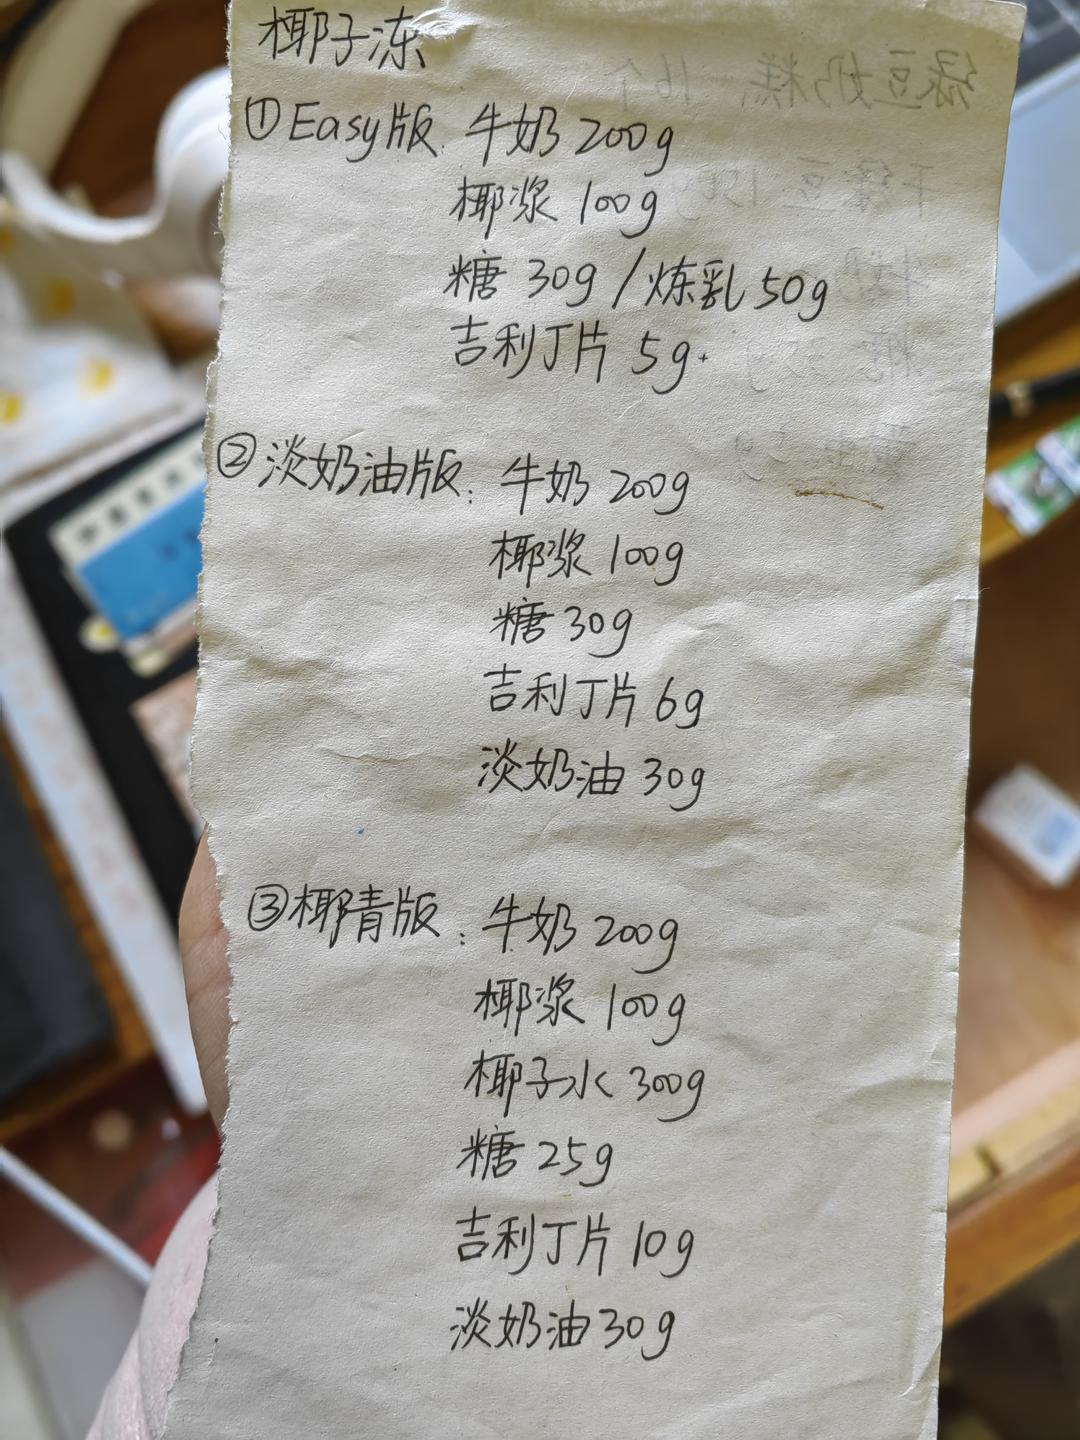 椰子冻
①Easy版 牛奶 200g
椰浆 100g
糖 30g / 炼乳 50g
吉利丁片 5g.
②淡奶油版: 牛奶 200g
椰浆 100g
糖 30g
吉利丁片 6g
淡奶油 30g
③椰青版: 牛奶 200g
椰浆 100g
椰子水 300g
糖 25g
吉利丁片 10g
淡奶油 30g
绿豆奶糕 16个